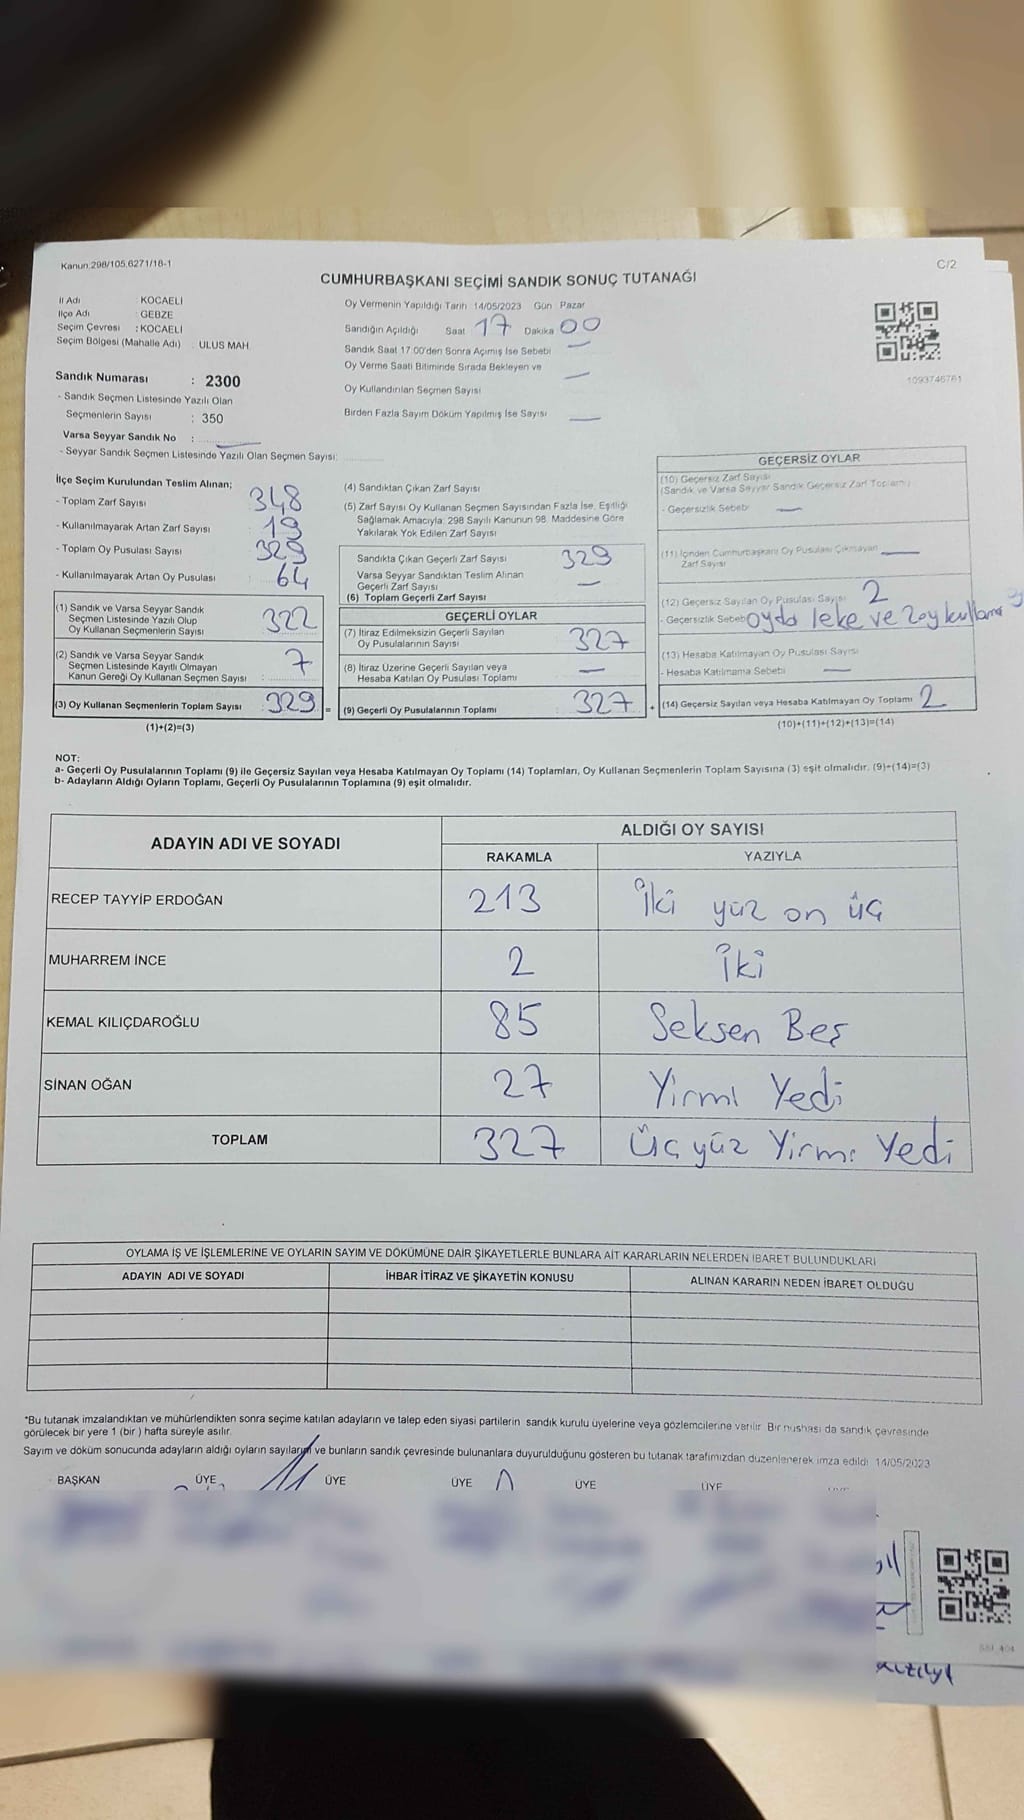 Kanun:298/105,6271/18-1
C/2
CUMHURBAŞKANI SEÇİMİ SANDIK SONUÇ TUTANAĞI
İl Adı : KOCAELİ
İlçe Adı : GEBZE
Seçim Çevresi : KOCAELİ
Seçim Bölgesi (Mahalle Adı) : ULUS MAH.
Oy Vermenin Yapıldığı Tarih 14/05/2023 Gün Pazar
Sandığın Açıldığı Saat 17 Dakika 00
Sandık Saat 17:00'den Sonra Açımış İse Sebebi —
Oy Verme Saati Bitiminde Sırada Bekleyen ve
Oy Kullandırılan Seçmen Sayısı —
Birden Fazla Sayım Döküm Yapılmış İse Sayısı —
1093746761
Sandık Numarası : 2300
- Sandık Seçmen Listesinde Yazılı Olan
Seçmenlerin Sayısı : 350
Varsa Seyyar Sandık No : —
- Seyyar Sandık Seçmen Listesinde Yazılı Olan Seçmen Sayısı:
İlçe Seçim Kurulundan Teslim Alınan;
- Toplam Zarf Sayısı 348
- Kullanılmayarak Artan Zarf Sayısı 19
- Toplam Oy Pusulası Sayısı 329
- Kullanılmayarak Artan Oy Pusulası 64
(1) Sandık ve Varsa Seyyar Sandık
Seçmen Listesinde Yazılı Olup
Oy Kullanan Seçmenlerin Sayısı 322
(2) Sandık ve Varsa Seyyar Sandık
Seçmen Listesinde Kayıtlı Olmayan
Kanun Gereği Oy Kullanan Seçmen Sayısı : 7
(3) Oy Kullanan Seçmenlerin Toplam Sayısı 329 =
(1)+(2)=(3)
(4) Sandıktan Çıkan Zarf Sayısı
(5) Zarf Sayısı Oy Kullanan Seçmen Sayısından Fazla İse, Eşitliği
Sağlamak Amacıyla; 298 Sayılı Kanunun 98. Maddesine Göre
Yakılarak Yok Edilen Zarf Sayısı
Sandıkta Çıkan Geçerli Zarf Sayısı 329
Varsa Seyyar Sandıktan Teslim Alınan
Geçerli Zarf Sayısı —
(6) Toplam Geçerli Zarf Sayısı
GEÇERLİ OYLAR
(7) İtiraz Edilmeksizin Geçerli Sayılan
Oy Pusulalarının Sayısı 327
(8) İtiraz Üzerine Geçerli Sayılan veya
Hesaba Katılan Oy Pusulası Toplamı —
(9) Geçerli Oy Pusulalarının Toplamı 327 +
GEÇERSİZ OYLAR
(10) Geçersiz Zarf Sayısı
(Sandık ve Varsa Seyyar Sandık Geçersiz Zarf Toplamı)
- Geçersizlik Sebebi —
(11) İçinden Cumhurbaşkanı Oy Pusulası Çıkmayan
Zarf Sayısı —
(12) Geçersiz Sayılan Oy Pusulası Sayısı 2
- Geçersizlik Sebebi oyda leke ve 2 oy kullanma
(13) Hesaba Katılmayan Oy Pusulası Sayısı
- Hesaba Katılmama Sebebi —
(14) Geçersiz Sayılan veya Hesaba Katılmayan Oy Toplamı 2
(10)+(11)+(12)+(13)=(14)
NOT:
a- Geçerli Oy Pusulalarının Toplamı (9) ile Geçersiz Sayılan veya Hesaba Katılmayan Oy Toplamı (14) Toplamları, Oy Kullanan Seçmenlerin Toplam Sayısına (3) eşit olmalıdır. (9)+(14)=(3)
b- Adayların Aldığı Oyların Toplamı, Geçerli Oy Pusulalarının Toplamına (9) eşit olmalıdır.
ADAYIN ADI VE SOYADI
ALDIĞI OY SAYISI
RAKAMLA YAZIYLA
RECEP TAYYİP ERDOĞAN 213 İki yüz on üç
MUHARREM İNCE 2 İki
KEMAL KILIÇDAROĞLU 85 Seksen Beş
SİNAN OĞAN 27 Yirmi Yedi
TOPLAM 327 Üç yüz Yirmi Yedi
OYLAMA İŞ VE İŞLEMLERİNE VE OYLARIN SAYIM VE DÖKÜMÜNE DAİR ŞİKAYETLERLE BUNLARA AİT KARARLARIN NELERDEN İBARET BULUNDUKLARI
ADAYIN ADI VE SOYADI
İHBAR İTİRAZ VE ŞİKAYETİN KONUSU
ALINAN KARARIN NEDEN İBARET OLDUĞU
*Bu tutanak imzalandıktan ve mühürlendikten sonra seçime katılan adayların ve talep eden siyasi partilerin sandık kurulu üyelerine veya gözlemcilerine verilir. Bir nushası da sandık çevresinde
görülecek bir yere 1 (bir ) hafta süreyle asılır.
Sayım ve döküm sonucunda adayların aldığı oyların sayılarını ve bunların sandık çevresinde bulunanlara duyurulduğunu gösteren bu tutanak tarafımızdan düzenlenerek imza edildi 14/05/2023
BAŞKAN ÜYE ÜYE ÜYE ÜYE ÜYE